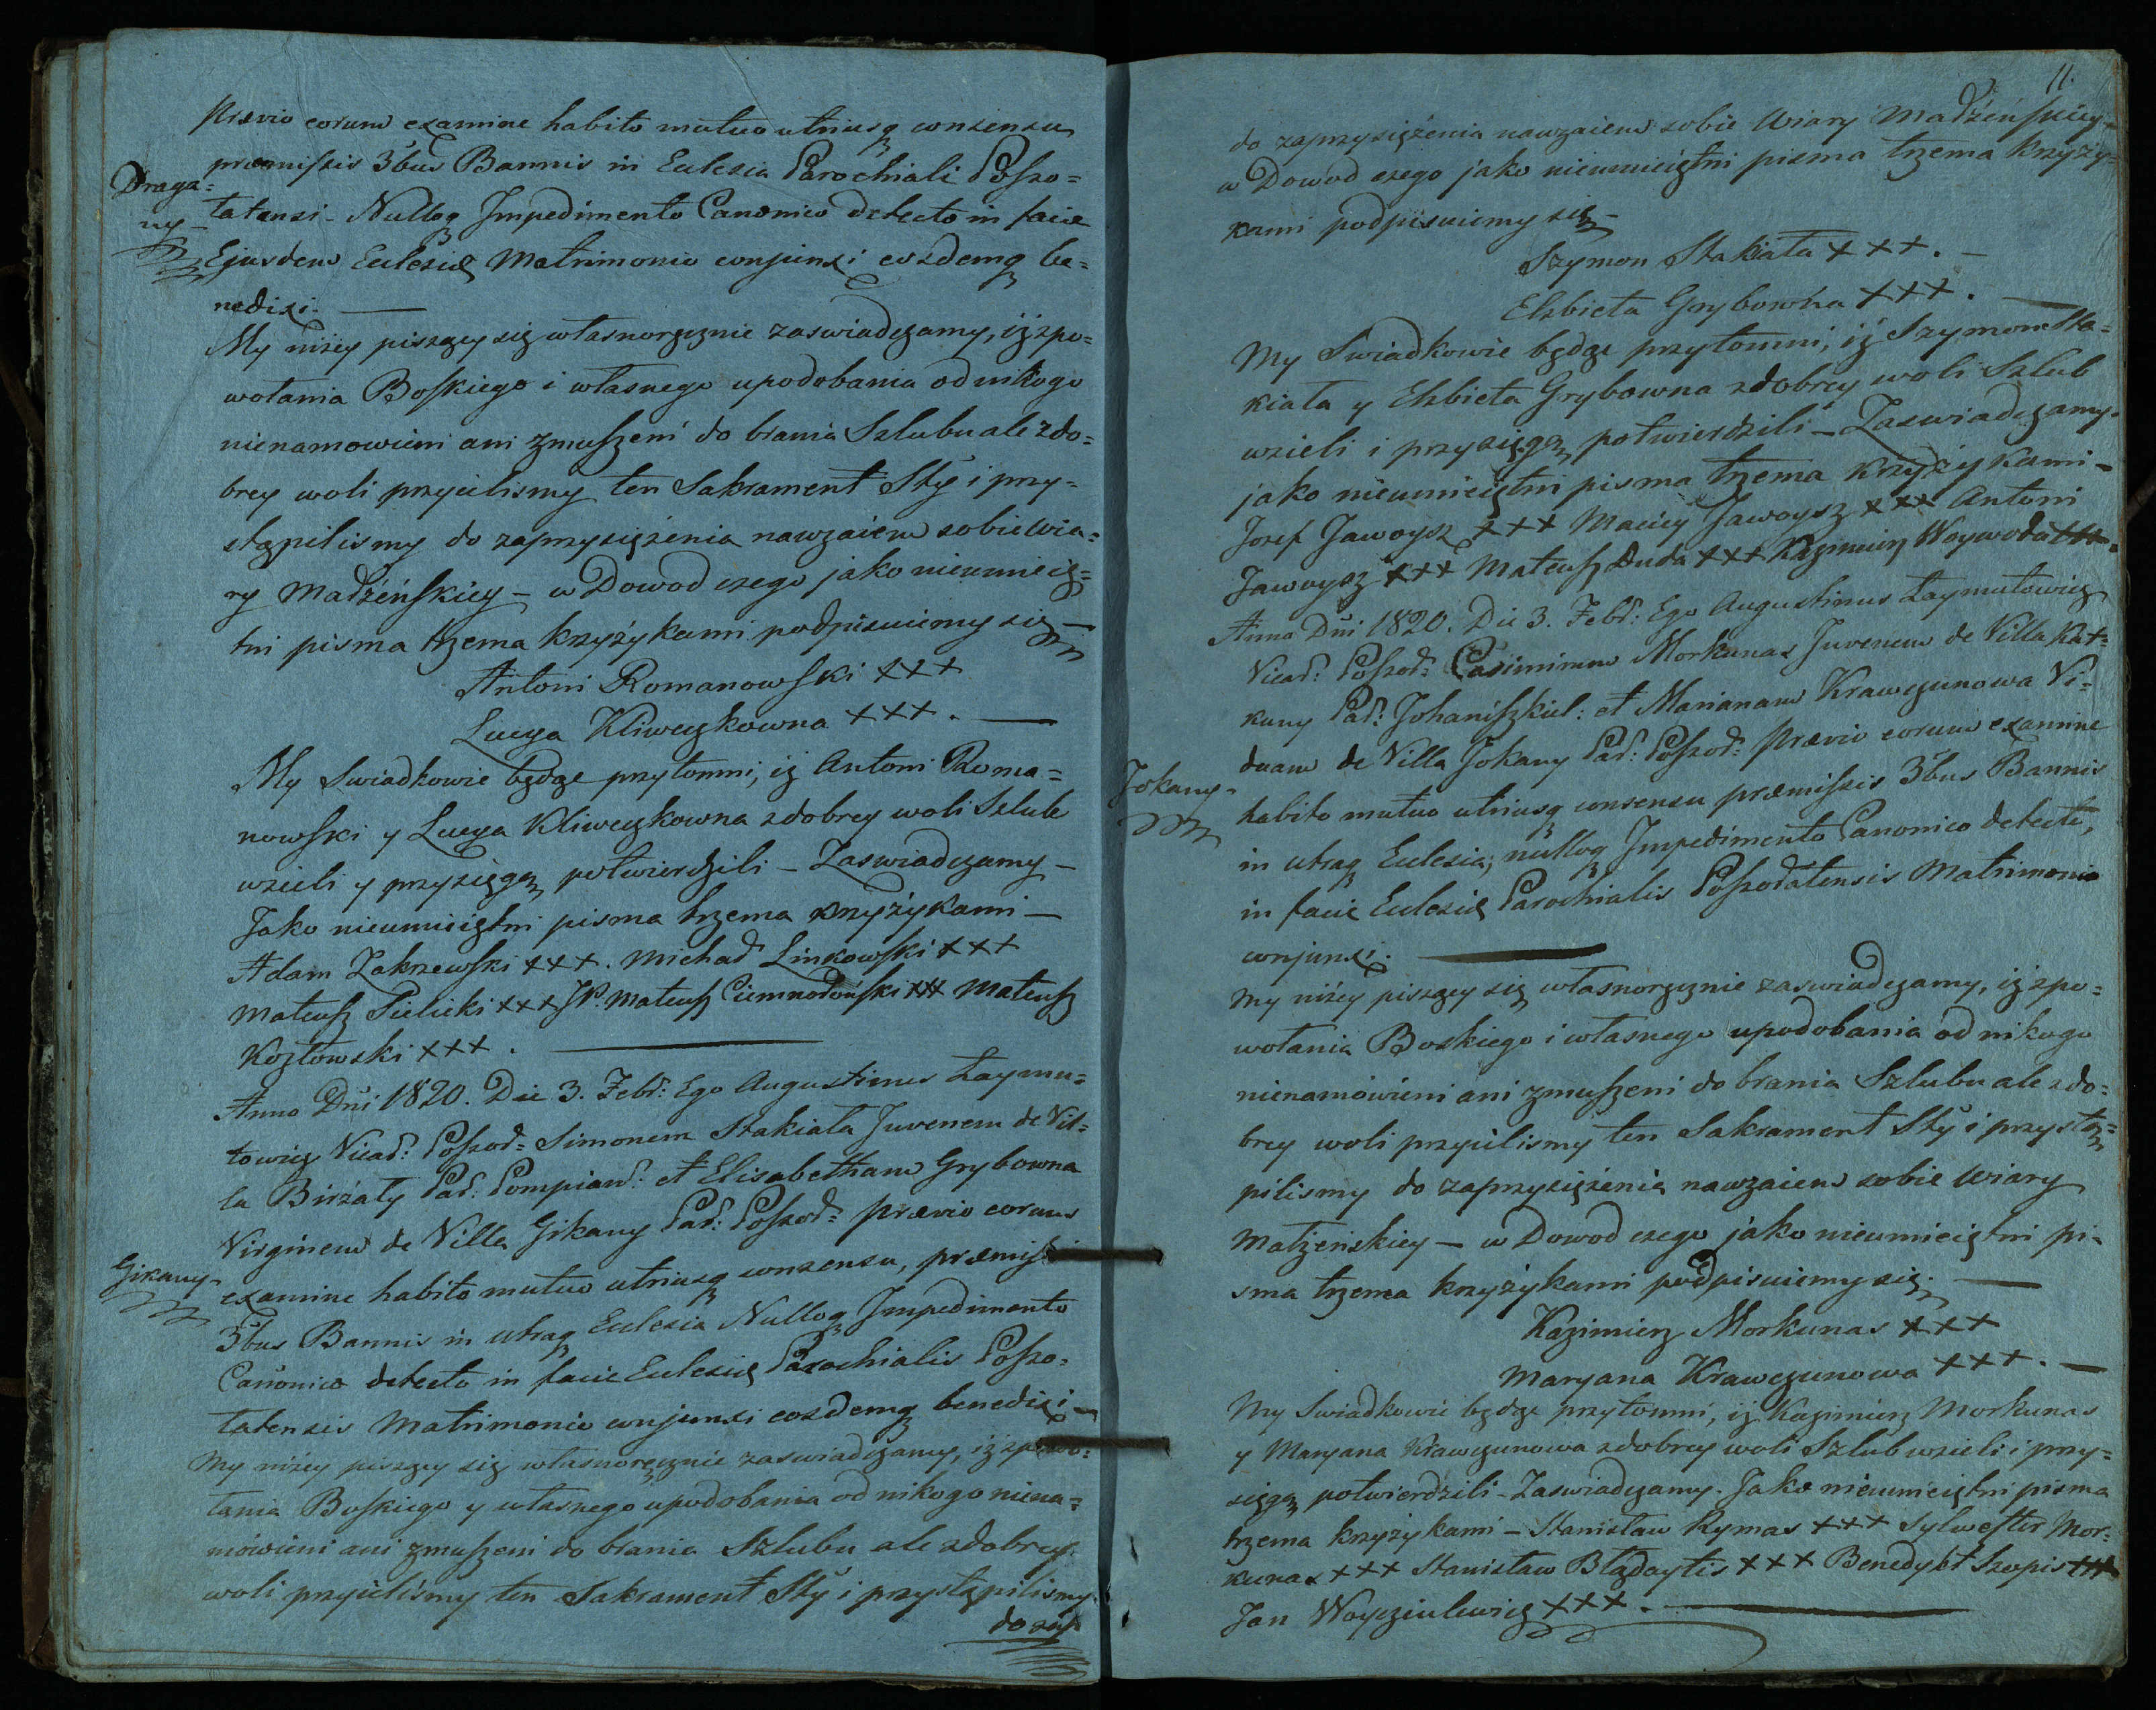 Prævio eorum examine habito mutuo utriusq consensu
præmissis 3bus Bannis in Eulesia Parochiali Poszo=
Draga=
ny
tatensi - Nulloq Impedimento Canonico detecto in facie
Ejusdem Eulesię Matrimonio conjunxi eosdemq be=
nedixi.
My niżey piszący się własnoręcznie zaswiadczamy, iż zpo=
wołania Boskiego i własnego upodobania od nikogo
nienamowieni ani zmuszeni do brania Szlubu ale zdo=
brey woli przyielismy ten Sakrament Sty i przy=
stąpilismy do zaprzysiężenia nawzaiem sobie Wia=
ry Madżeńskiey - w Dowod czego jako nieumieię=
tni pisma trzema krzyżykami podpisuiemy się
Antoni Romanowski +++
Lucya Kliweczkowna +++. —
My Swiadkowie będąc przytomni, iż Antoni Roma=
nowski y Lucya Kliweczkowna zdobrey woli Szlub
wzieli y przysięgą potwierdzili - Zaswiadczamy -
Jako nieumieiętni pisma trzema krzyżykami —
Adam Zakrzewski +++. Michał Linkowski +++
Mateusz Pielicki +++ JP. Mateusz Ciemnodoński +++ Mateusz
Kozłowski +++.
Anno Dñi 1820. Die 3. Febr: Ego Augustinus Łaymu=
towicz Vicar: Poszod= Simonem Stakiata Juvenem de Vil=
la Birżaty Par: Pompian: et Elisabetham Grybowna
Virginem de Villa Gikany Par: Poszod= prævio eorum
Gikany
examine habito mutuo utriusq consensu, præmissi
3bus Bannis in utraq Eulesia Nulloq Impedimento
Canonico detecto in facie Eulesię Parochialis Poszo=
tatensis Matrimonio conjunxi eosdemq benedixi -
My niżey piszący się własnoręcznie zaswiadczamy, iż zpowo=
łania Boskiego y własnego upodobania od nikogo niena=
mówieni ani zmuszeni do brania Szlubu ale zdobrey
woli przyielismy ten Sakrament Sty i przystąpilismy
do zap
11.
do zaprzysiężenia nawzaiem sobie Wiary Madżeńskiey -
w Dowod czego jako nieumieiętni pisma trzema krzyży=
kami podpisuiemy się -
Szymon Stakiata +++. —
Elżbieta Grybowna +++. —
My Swiadkowie będąc przytomni, iż Szymon Sta=
kiata y Elżbieta Grybowna zdobrey woli Szlub
wzieli i przysięgą potwierdzili - Zaswiadczamy -
jako nieumieiętni pisma trzema krzyżykami -
Jozef Jawoysz +++ Maciey Jawoysz +++ Antoni
Jawoysz +++ Mateusz Duda +++ Kazimierz Woywoda +++
Anno Dñi 1820. Die 3. Febr: Ego Augustinus Łaymutowicz
Vicar: Poszod= Casimirum Morkunas Juvenem de Villa Kat=
kuny Par: Johaniszkiel: et Marianam Krawczunowa Vi=
duam de Villa Jokany Par: Poszod= prævio eorum examine
Jokany
habito mutuo utriusq consensu præmissis 3bus Bannis
in utraq Eulesia, nulloq Impedimento Canonico detecto,
in facie Eulesię Parochialis Poszodatensis Matrimonio
conjunxi.
My niżey piszący się własnoręcznie zaswiadczamy, iż zpo=
wołania Boskiego i własnego upodobania od nikogo
nienamówieni ani zmuszeni do brania Szlubu ale zdo=
brey woli przyielismy ten Sakrament Sty i przystą=
pilismy do zaprzysiężenia nawzaiem sobie Wiary
Małżenskiey — w Dowod czego jako nieumieiętni pi=
sma trzema krzyżykami podpisuiemy się. —
Kazimierz Morkunas +++
Maryana Krawczunowa +++. —
My Swiadkowie będąc przytomni, iż Kazimierz Morkunas
y Maryana Krawczunowa zdobrey woli Szlub wzieli i przy=
sięgą potwierdzili - Zaswiadczamy. Jako nieumieiętni pisma
trzema krzyżykami - Stanisław Rymas +++ Sylwester Mor=
kunas +++ Stanisław Błażdaytis +++ Benedykt Szopis +++
Jan Woyczulewicz +++.